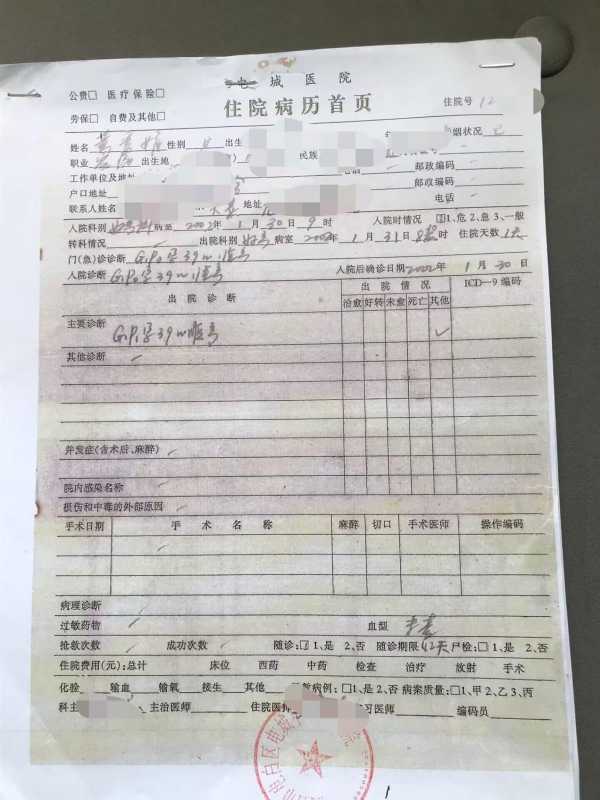 公费□ 医疗保险□ 电城医院
劳保□ 自费及其他□ 住院病历首页 住院号 12
姓名 性别 出生 婚姻状况 已
职业 农民 出生地 民族 电话 邮政编码
工作单位及地址 邮政编码
户口地址 电话
联系人姓名 地址
入院科别 妇产科 病室 2002年 1月 30日 9时 入院时情况 1、危 2、急 3、一般
转科情况 出院科别 妇产 病室 2002年 1月 31日 8时 住院天数 1天
门(急)诊诊断 G1P0孕39W临产
入院诊断 G1P0孕39W临产 入院后确诊日期 2002年 1月 30日
出院诊断 出院情况 ICD—9编码
治愈 好转 未愈 死亡 其他
主要诊断 G1P1孕39W顺产 ✓
其他诊断
并发症(含术后、麻醉)
院内感染名称
损伤和中毒的外部原因
手术日期 手术名称 麻醉 切口 手术医师 操作编码
病理诊断
过敏药物 血型 未查
抢救次数 成功次数 随诊:□1、是 2、否 随诊期限 42天 尸检:□1、是 2、否
住院费用(元):总计 床位 西药 中药 检查 治疗 放射 手术
化验 输血 输氧 接生 其他 病例:□1、是 2、否 病案质量:□1、甲 2、乙 3、丙
科主 主治医师 住院医 习医师 编码员
白区电城
1